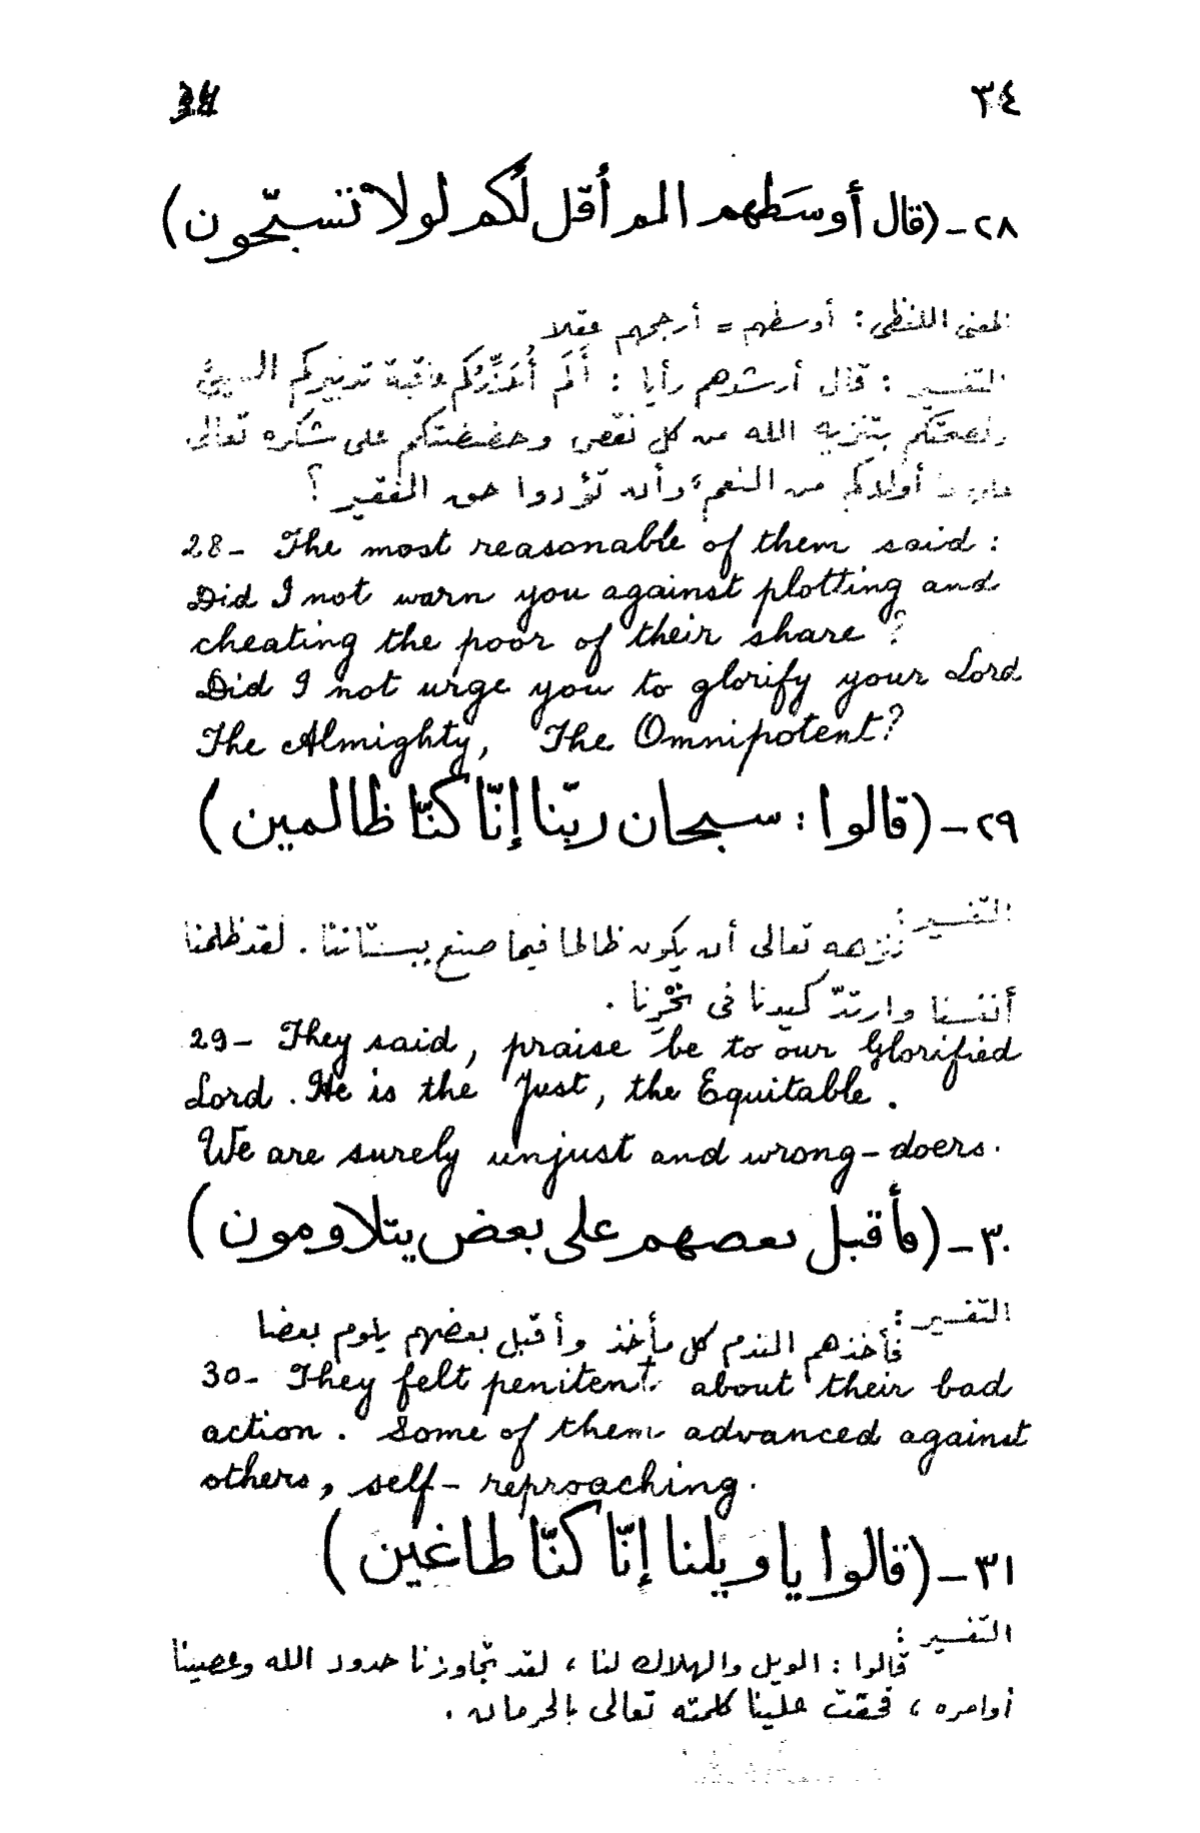 34 ٣٤
٢٨ - (قال أوسَطهم الم أقل لَكم لولا تسبّحون)
المعنى اللفظي : أوسطهم = أرجحهم عقلا
التفسير : قال أرشدهم رأيا : أَلَم أُحَذِّرْكم عاقبة تدبيركم السيئ
ونصحتكم بتنزيه الله من كل نقص وحضضتكم على شكره تعالى
على ما أولاكم من النعم، وأن تؤدوا حق الفقير ؟
28- The most reasonable of them said :
Did I not warn you against plotting and
cheating the poor of their share ?
Did I not urge you to glorify your Lord
The Almighty, The Omnipotent?
٢٩ - (قالوا : سبحان ربّنا إنّا كنّا ظالمين)
التفسير :
ننزهه تعالى أن يكون ظالما فيما صنع ببستاننا . لقد ظلمنا
أنفسنا وارتدّ كيدنا في نَحْرِنا .
29- They said, praise be to our Glorified
Lord . He is the Just, the Equitable .
We are surely unjust and wrong-doers.
٣٠ - (فأقبل بعضهم على بعض يتلاومون)
التفسير :
فأخذهم الندم كل مأخذ وأقبل بعضهم يلوم بعضا
30- They felt penitent about their bad
action . Some of them advanced against
others, self-reproaching.
٣١ - (قالوا يا ويلنا إنّا كنّا طاغين)
التفسير :
قالوا : الويل والهلاك لنا ، لقد تجاوزنا حدود الله وعصينا
أوامره ، فحقت علينا كلمته تعالى بالحرمان .